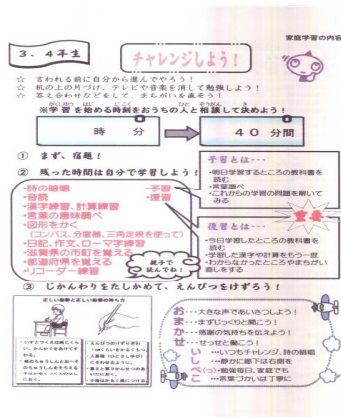 家庭学習の内容
3．4年生
チャレンジしよう！
☆ 言われる前に自分から進んでやろう！
☆ 机の上の片づけ、テレビや音楽を消して勉強しよう！
☆ 答え合わせなどをして、まちがいを直そう！
※学習を始める時刻をおうちの人と相談して決めよう！
がくしゅう はじ じこく ひと そうだん き
時 分
４０分間
① まず、宿題！
② 残った時間は自分で学習しよう！
・詩の暗唱 ・予習
・音読 ・復習
・漢字練習、計算練習
・言葉の意味調べ
・図形をかく
（コンパス、分度器、三角定規を使って）
・日記、作文、ローマ字練習
・滋賀県の市町を覚える
・都道府県を覚える
・リコーダー練習
親子で
読んでね！
予習とは・・・
・明日学習するところの教科書を
読む
・言葉調べ
・これからの学習の問題を解いて
みる
重要
復習とは・・・
・今日学習したところの教科書を
読む
・学習した漢字や計算をもう一度
・わからなかったところやまちがい
直しをする
③ じかんわりをたしかめて、えんぴつをけずろう！
正しい姿勢と正しい鉛筆の持ち方
お・・・大きな声であいさつしよう！
ま・・・まずじっくりと聞こう！
か・・・感謝の気持ちを伝えよう！
せ・・・せっせと働こう！
い・・・いつもチャレンジ、詩の暗唱
し・・・静かに廊下は右側
べ（っ）・・・勉強毎日、家庭でも
こ・・・言葉づかいは丁寧に